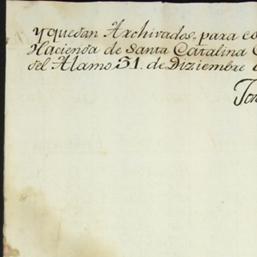 y quedan Archivados. para co
Hacienda de Santa Catalina
del Alamo 31. de Diziembre